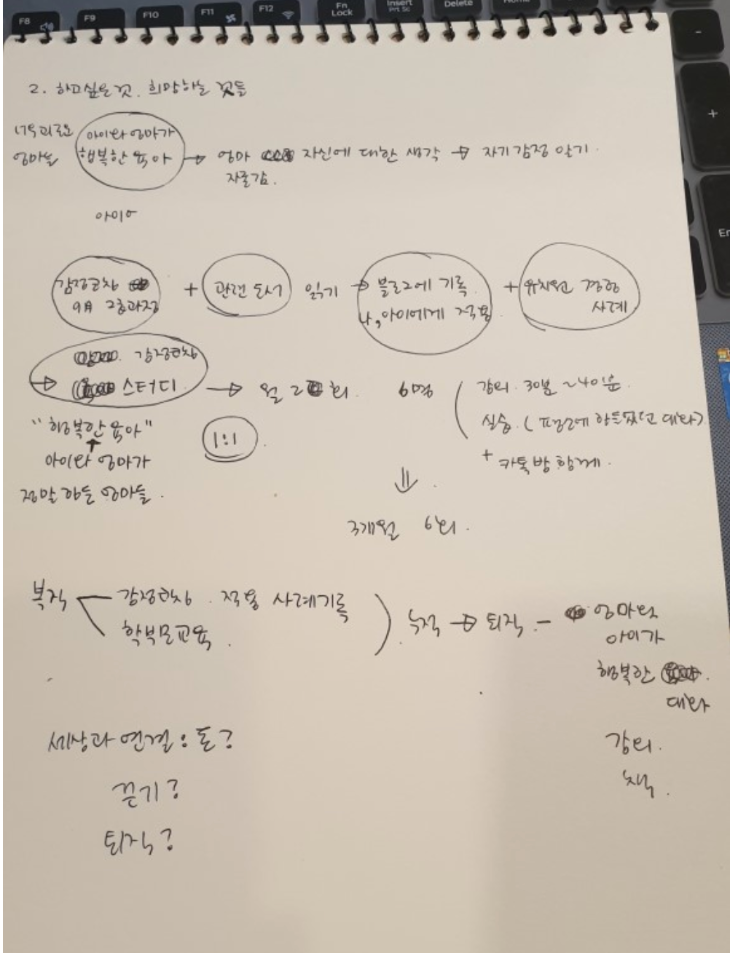 F8
F9
F10
F11
F12
Fn Lock
Insert
Prt Sc
Delete
2. 하고싶은것. 희망하는 것들
아이와 엄마가
행복한 육아 → 엄마 자신에 대한 생각 → 자기감정 알기.
엄마들
자존감.
아이
감정코칭
2급과정
+ 관련 도서 읽기 → 블로그에 기록
나, 아이에게 적용
+ 유치원 경험
사례
감정코칭
→ 스터디 → 월 2회 6명
강의. 30분~40분
실습. (평소에 힘들었던 대화)
+ 카톡방 함께.
"행복한 육아"
1:1
아이와 엄마가
정말 힘든 엄마들.
⇓
3개월 6회.
복직
감정코칭. 적용 사례기록
학부모교육.
축적 → 퇴직 - 엄마와
아이가
행복한
대화
강의.
책.
세상과 연결: 돈?
끈기?
퇴직?